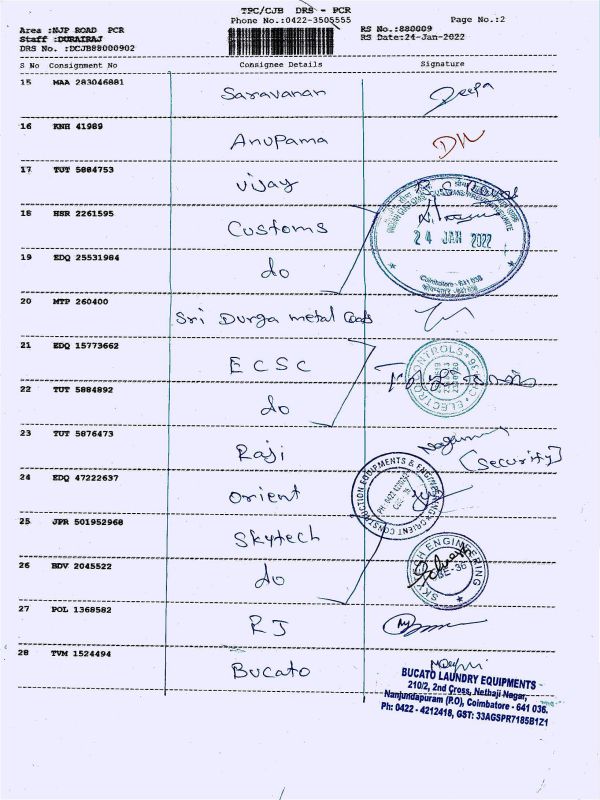 TPC/CJB DRS - PCR
Phone No.:0422-3505555
Page No.:2
Area :NJP ROAD PCR
RS No.:880009
Staff :DURAIRAJ
RS Date:24-Jan-2022
DRS No. :DCJB88000902
S No Consignment No Consignee Details Signature
15 MAA 283046881 Saravanan Deepa
16 KNH 41989 Anupama
17 TUT 5884753 Vijay
18 HSR 2261595 Customs
24 JAN 2022
19 EDQ 25531984 do
Coimbatore - 641 018
20 MTP 260400 Sri Durga metal
21 EDQ 15773662 ECSC
22 TUT 5884892 do
23 TUT 5876473 Raji
[Security]
24 EDQ 47222637 Orient
ORIENT CONSTRUCTION EQUIPMENTS & ENGINEERING
25 JPR 501952968 Skytech
26 BDV 2045522 do
SKYTECH ENGINEERING
CBE-36
27 POL 1368582 RJ
28 TVM 1524494 Bucato
BUCATO LAUNDRY EQUIPMENTS
210/2, 2nd Cross, Nethaji Nagar,
Nanjundapuram (P.O), Coimbatore - 641 036.
Ph: 0422 - 4212418, GST: 33AGSPR7185B1Z1